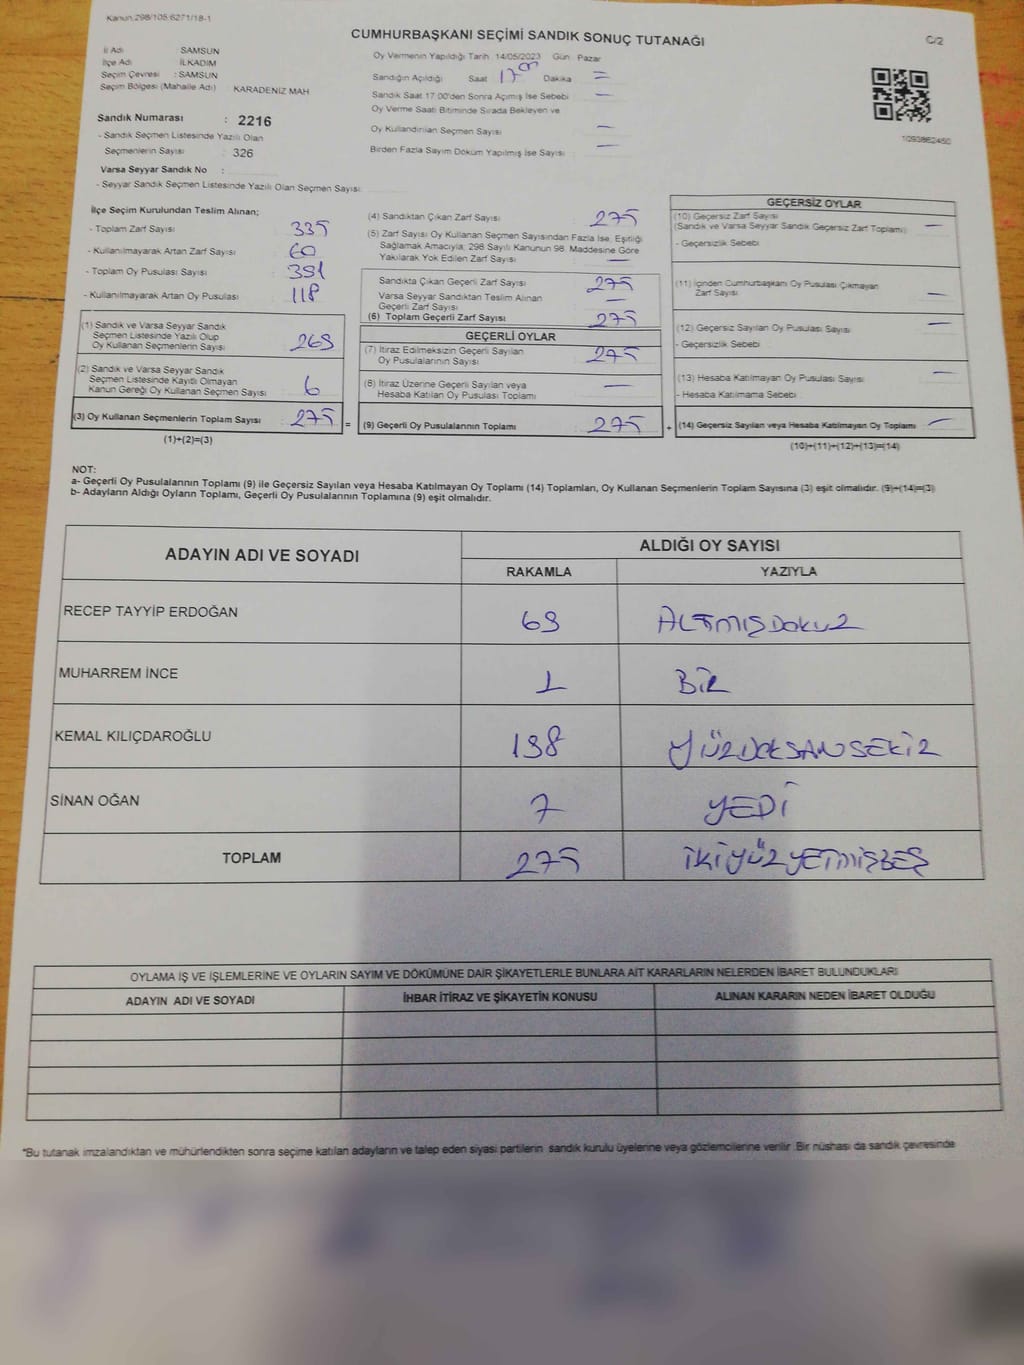 Kanun:298/105;6271/18-1
CUMHURBAŞKANI SEÇİMİ SANDIK SONUÇ TUTANAĞI
C/2
İl Adı SAMSUN
İlçe Adı İLKADIM
Seçim Çevresi : SAMSUN
Seçim Bölgesi (Mahalle Adı) KARADENİZ MAH
Oy Vermenin Yapıldığı Tarih 14/05/2023 Gün Pazar
Sandığın Açıldığı Saat 17 00 Dakika =
Sandık Saat 17:00'den Sonra Açımış İse Sebebi —
Oy Verme Saati Bitiminde Sırada Bekleyen ve
Oy Kullandırılan Seçmen Sayısı —
Birden Fazla Sayım Döküm Yapılmış İse Sayısı —
1093862450
Sandık Numarası : 2216
- Sandık Seçmen Listesinde Yazılı Olan
Seçmenlerin Sayısı : 326
Varsa Seyyar Sandık No :
- Seyyar Sandık Seçmen Listesinde Yazılı Olan Seçmen Sayısı
İlçe Seçim Kurulundan Teslim Alınan;
- Toplam Zarf Sayısı 335
- Kullanılmayarak Artan Zarf Sayısı 60
- Toplam Oy Pusulası Sayısı 391
- Kullanılmayarak Artan Oy Pusulası 118
(1) Sandık ve Varsa Seyyar Sandık
Seçmen Listesinde Yazılı Olup
Oy Kullanan Seçmenlerin Sayısı 269
(2) Sandık ve Varsa Seyyar Sandık
Seçmen Listesinde Kayıtlı Olmayan
Kanun Gereği Oy Kullanan Seçmen Sayısı 6
(3) Oy Kullanan Seçmenlerin Toplam Sayısı 275 =
(1)+(2)=(3)
(4) Sandıktan Çıkan Zarf Sayısı 275
(5) Zarf Sayısı Oy Kullanan Seçmen Sayısından Fazla İse, Eşitliği
Sağlamak Amacıyla, 298 Sayılı Kanunun 98. Maddesine Göre
Yakılarak Yok Edilen Zarf Sayısı —
Sandıkta Çıkan Geçerli Zarf Sayısı 275
Varsa Seyyar Sandıktan Teslim Alınan
Geçerli Zarf Sayısı —
(6) Toplam Geçerli Zarf Sayısı 275
GEÇERLİ OYLAR
(7) İtiraz Edilmeksizin Geçerli Sayılan
Oy Pusulalarının Sayısı 275
(8) İtiraz Üzerine Geçerli Sayılan veya
Hesaba Katılan Oy Pusulası Toplamı —
(9) Geçerli Oy Pusulalarının Toplamı 275 +
GEÇERSİZ OYLAR
(10) Geçersiz Zarf Sayısı
(Sandık ve Varsa Seyyar Sandık Geçersiz Zarf Toplamı) —
- Geçersizlik Sebebi
(11) İçinden Cumhurbaşkanı Oy Pusulası Çıkmayan
Zarf Sayısı —
(12) Geçersiz Sayılan Oy Pusulası Sayısı —
- Geçersizlik Sebebi
(13) Hesaba Katılmayan Oy Pusulası Sayısı —
- Hesaba Katılmama Sebebi
(14) Geçersiz Sayılan veya Hesaba Katılmayan Oy Toplamı —
(10)+(11)+(12)+(13)=(14)
NOT:
a- Geçerli Oy Pusulalarının Toplamı (9) ile Geçersiz Sayılan veya Hesaba Katılmayan Oy Toplamı (14) Toplamları, Oy Kullanan Seçmenlerin Toplam Sayısına (3) eşit olmalıdır. (9)+(14)=(3)
b- Adayların Aldığı Oyların Toplamı, Geçerli Oy Pusulalarının Toplamına (9) eşit olmalıdır.
ADAYIN ADI VE SOYADI ALDIĞI OY SAYISI
RAKAMLA YAZIYLA
RECEP TAYYİP ERDOĞAN 69 ALTMIŞDOKUZ
MUHARREM İNCE 1 BİR
KEMAL KILIÇDAROĞLU 198 YÜZDOKSANSEKİZ
SİNAN OĞAN 7 YEDİ
TOPLAM 275 İKİYÜZYETMİŞBEŞ
OYLAMA İŞ VE İŞLEMLERİNE VE OYLARIN SAYIM VE DÖKÜMÜNE DAİR ŞİKAYETLERLE BUNLARA AİT KARARLARIN NELERDEN İBARET BULUNDUKLARI
ADAYIN ADI VE SOYADI İHBAR İTİRAZ VE ŞİKAYETİN KONUSU ALINAN KARARIN NEDEN İBARET OLDUĞU
*Bu tutanak imzalandıktan ve mühürlendikten sonra seçime katılan adayların ve talep eden siyasi partilerin sandık kurulu üyelerine veya gözlemcilerine verilir. Bir nüshası da sandık çevresinde